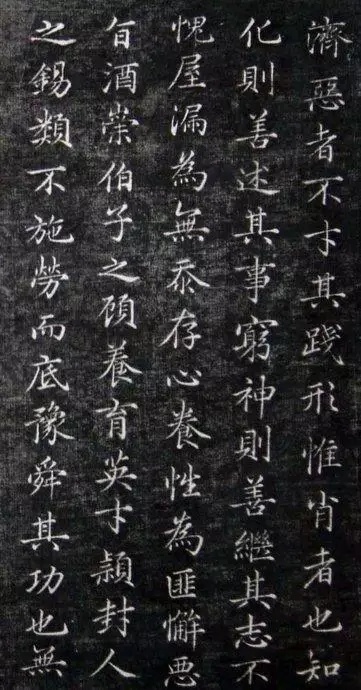 濟惡者不才其踐形惟肖者也知
化則善述其事窮神則善繼其志不
愧屋漏為無忝存心養性為匪懈惡
旨酒崇伯子之顧養育英才頴封人
之錫類不施勞而底豫舜其功也無